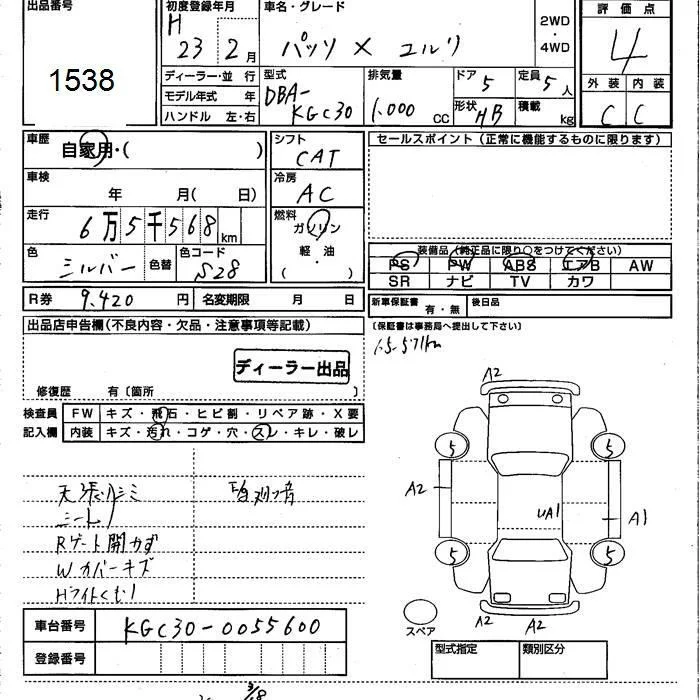 出品番号
1538
初度登録年月
H
23 2月
車名・グレード
パッソ X ユルリ
2WD
・
4WD
評価点
4
外装 内装
C C
ディーラー・並行
モデル年式 年
ハンドル 左・右
型式
DBA-
KGC30
排気量
1.000 cc
ドア 5
形状 HB
定員 5 人
積載 kg
車歴
自家用・( )
車検
年 月( 日)
走行
6万5千568km
色
シルバー
色替
色コード
S28
シフト
CAT
冷房
AC
燃料
ガソリン
軽・油
( ・ )
セールスポイント (正常に機能するものに限ります)
装備品 (純正品に限り○をつけてください)
PS PW ABS エアB AW
SR ナビ TV カワ
R券 9.420 円 名変期限 月 日
新車保証書 有・無 後日品
(保証書は事務局へ提出して下さい)
出品店申告欄(不良内容・欠品・注意事項等記載)
ディーラー出品
修復歴 有〔箇所 〕
検査員
記入欄
FW キズ・飛石・ヒビ割・リペア跡・X要
内装 キズ・汚れ・コゲ・穴・スレ・キレ・破レ
天張リシミ
シート〃
Rゲート開かず
Wカバーキズ
Hライトくもり
A2
5 5
A2 UA1 A1
5 5
スペア
A2 A2
車台番号 KGC30-0055600
登録番号
型式指定 類別区分